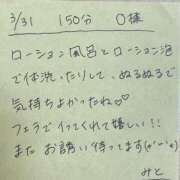 3/31 150分 O様
ローション風呂とローション泡
で体洗ったりして、ぬるぬるで
気持ちよかったね♡♡
フェラでイってくれて嬉しい!!
またお誘い待ってます(*'ω'*)
みと